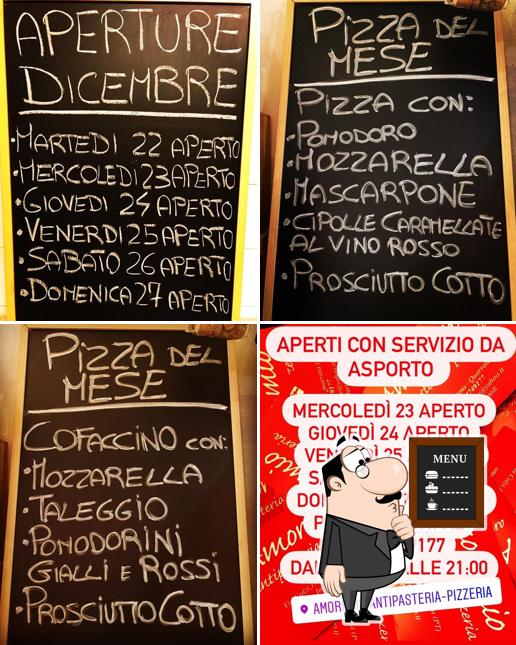 APERTURE
DICEMBRE
•MARTEDI 22 APERTO
•MERCOLEDI 23 APERTO
•GIOVEDI 24 APERTO
•VENERDI 25 APERTO
•SABATO 26 APERTO
•DOMENICA 27 APERTO
PIZZA DEL
MESE
PIZZA CON:
•POMODORO
•MOZZARELLA
•MASCARPONE
•CIPOLLE CARAMELLATE
AL VINO ROSSO
•PROSCIUTTO COTTO
PIZZA DEL
MESE
COFACCINO CON:
•MOZZARELLA
•TALEGGIO
•POMODORINI
GIALLI E ROSSI
•PROSCIUTTO COTTO
APERTI CON SERVIZIO DA
ASPORTO
MERCOLEDÌ 23 APERTO
GIOVEDÌ 24 APERTO
MENU
177
ALLE 21:00
ANTIPASTERIA-PIZZERIA